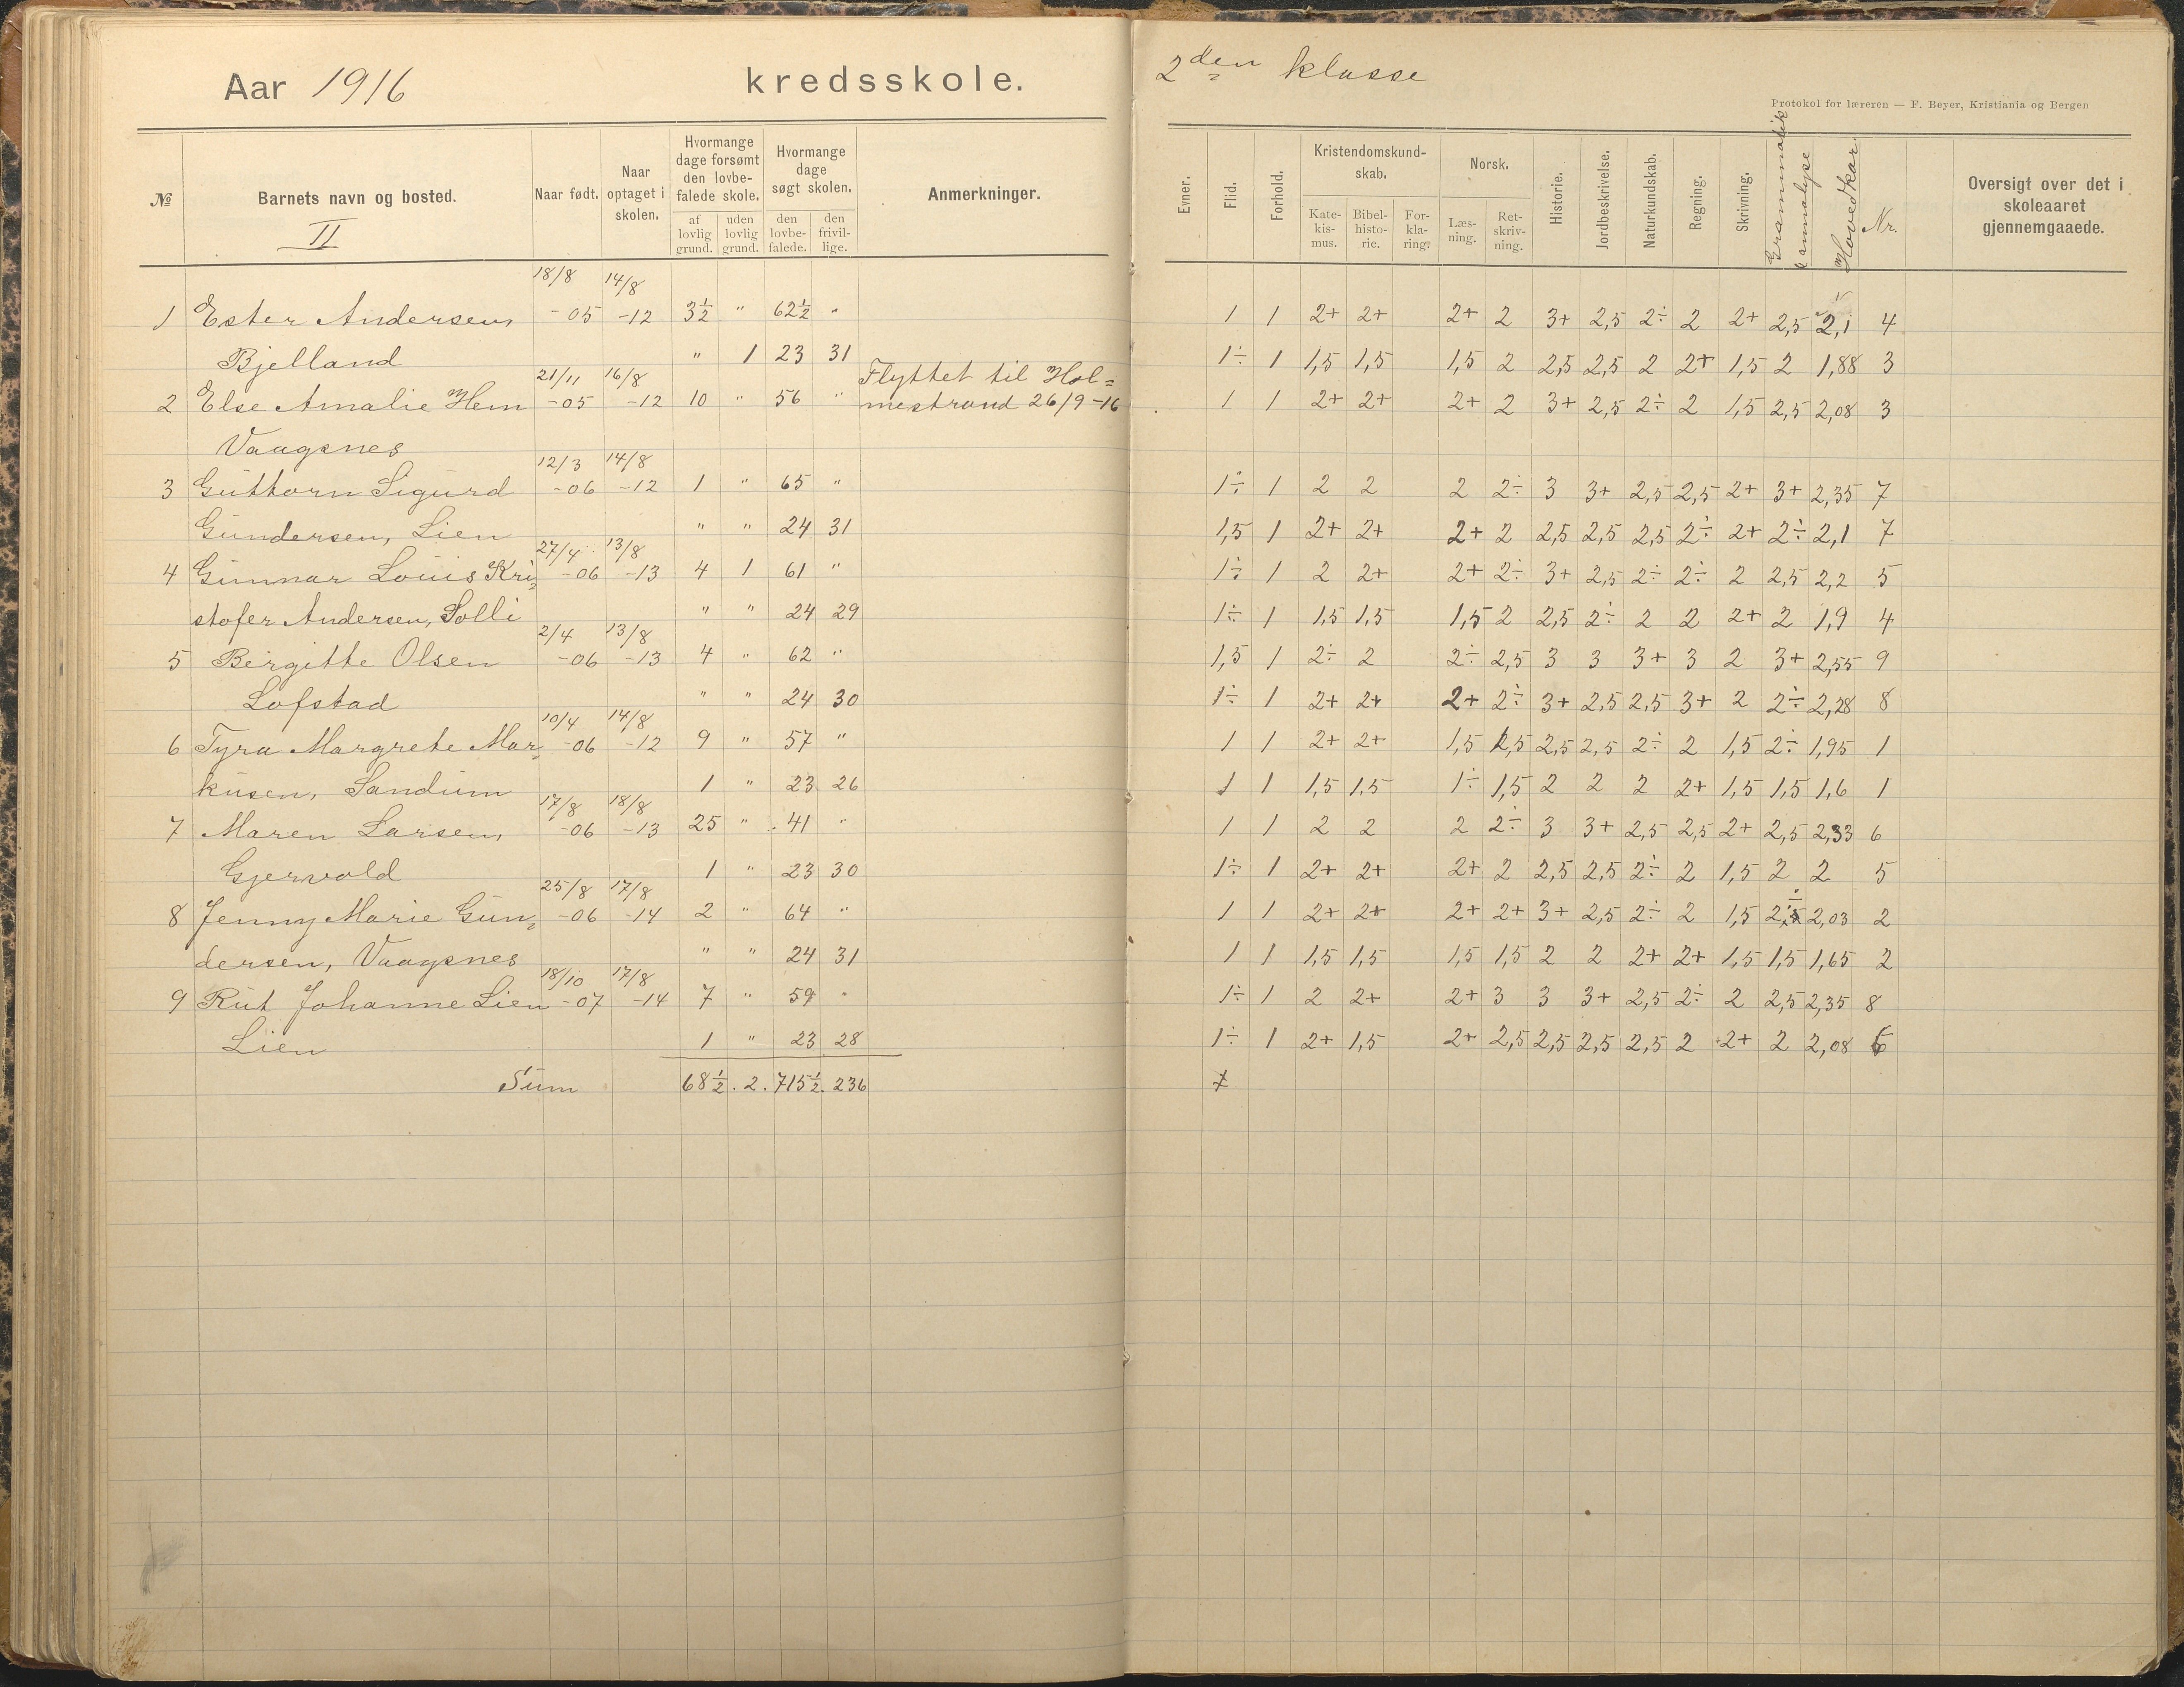 Aar 1916 kredsskole.
2den klasse
Protokol for læreren — F. Beyer, Kristiania og Bergen
№ Barnets navn og bosted. Naar født. Naar optaget i skolen. Hvormange dage forsømt den lovbefalede skole. af lovlig grund. uden lovlig grund. Hvormange dage søgt skolen. den lovbefalede. den frivillige. Anmerkninger.
Evner. Flid. Forhold. Kristendomskundskab. Katekismus. Bibelhistorie. Forklaring. Norsk. Læsning. Retskrivning. Historie. Jordbeskrivelse. Naturkundskab. Regning. Skrivning. Grammatik & annalyse Hovedkar. Nr. Oversigt over det i skoleaaret gjennemgaaede.
II
18/8 14/8
1 Ester Andersen, -05 -12 3½ " 62½ " 1 1 2+ 2+ 2+ 2 3+ 2,5 2÷ 2 2+ 2,5 2,1 4
Bjelland " 1 23 31 1÷ 1 1,5 1,5 1,5 2 2,5 2,5 2 2+ 1,5 2 1,88 3
21/11 16/8 Flyttet til Hol=
2 Else Amalie Hem -05 -12 10 " 56 " mestrand 26/9-16 1 1 2+ 2+ 2+ 2 3+ 2,5 2÷ 2 1,5 2,5 2,08 3
Vaagsnes
12/3 14/8
3 Guttorm Sigurd -06 -12 1 " 65 " 1÷ 1 2 2 2 2÷ 3 3+ 2,5 2,5 2+ 3+ 2,35 7
Gundersen, Lien " " 24 31 1,5 1 2+ 2+ 2+ 2 2,5 2,5 2,5 2÷ 2+ 2÷ 2,1 7
27/4 13/8
4 Gunnar Louis Kri= -06 -13 4 1 61 " 1÷ 1 2 2+ 2+ 2÷ 3+ 2,5 2÷ 2÷ 2 2,5 2,2 5
stofer Andersen, Solli " " 24 29 1÷ 1 1,5 1,5 1,5 2 2,5 2÷ 2 2 2+ 2 1,9 4
2/4 13/8
5 Bergitte Olsen -06 -13 4 " 62 " 1,5 1 2÷ 2 2÷ 2,5 3 3 3+ 3 2 3+ 2,55 9
Lofstad " " 24 30 1÷ 1 2+ 2+ 2+ 2÷ 3+ 2,5 2,5 3+ 2 2÷ 2,28 8
10/4 14/8
6 Tyra Margrete Mar= -06 -12 9 " 57 " 1 1 2+ 2+ 1,5 1,5 2,5 2,5 2÷ 2 1,5 2÷ 1,95 1
kusen, Sandum 1 " 23 26 1 1 1,5 1,5 1÷ 1,5 2 2 2 2+ 1,5 1,5 1,6 1
17/8 18/8
7 Maren Larsen, -06 -13 25 " 41 " 1 1 2 2 2 2÷ 3 3+ 2,5 2,5 2+ 2,5 2,33 6
Gjervold 1 " 23 30 1÷ 1 2+ 2+ 2+ 2 2,5 2,5 2÷ 2 1,5 2 2 5
25/8 17/8
8 Jenny Marie Gun= -06 -14 2 " 64 " 1 1 2+ 2+ 2+ 2+ 3+ 2,5 2÷ 2 1,5 2÷ 2,03 2
dersen, Vaagsnes " " 24 31 1 1 1,5 1,5 1,5 1,5 2 2 2+ 2+ 1,5 1,5 1,65 2
18/10 17/8
9 Rut Johanne Lien -07 -14 7 " 59 " 1÷ 1 2 2+ 2+ 3 3 3+ 2,5 2÷ 2 2,5 2,35 8
Lien 1 " 23 28 1÷ 1 2+ 1,5 2+ 2,5 2,5 2,5 2,5 2 2+ 2 2,08 6
Sum 68½. 2. 715½. 236